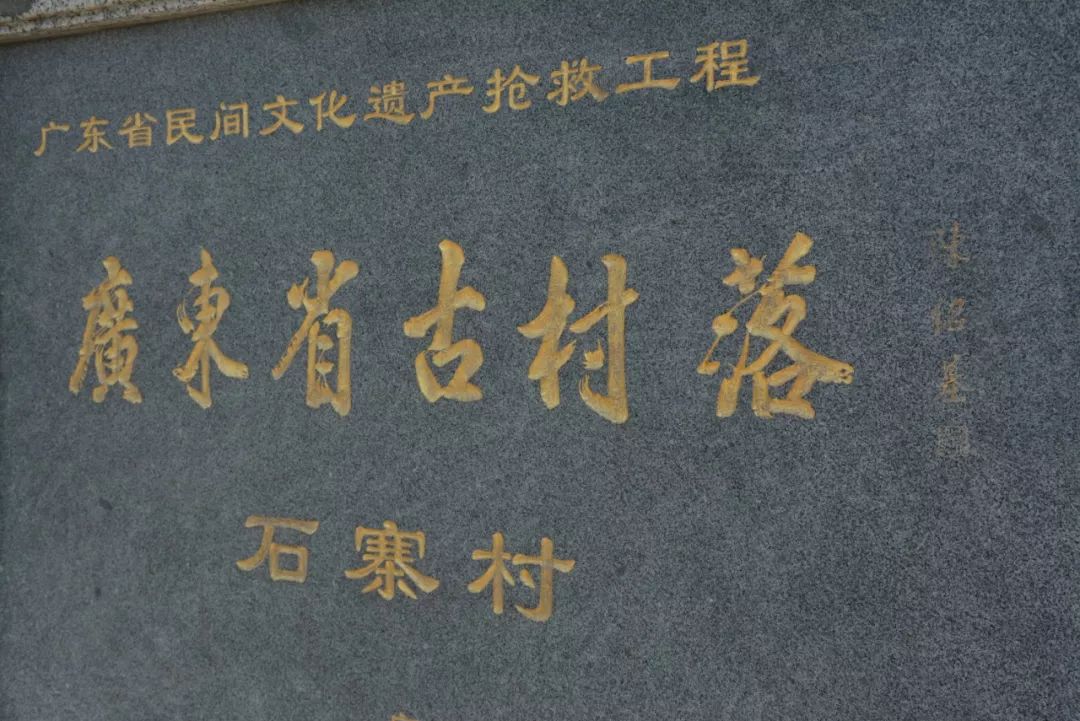 广东省民间文化遗产抢救工程
廣東省古村落
陈绍基
石寨村